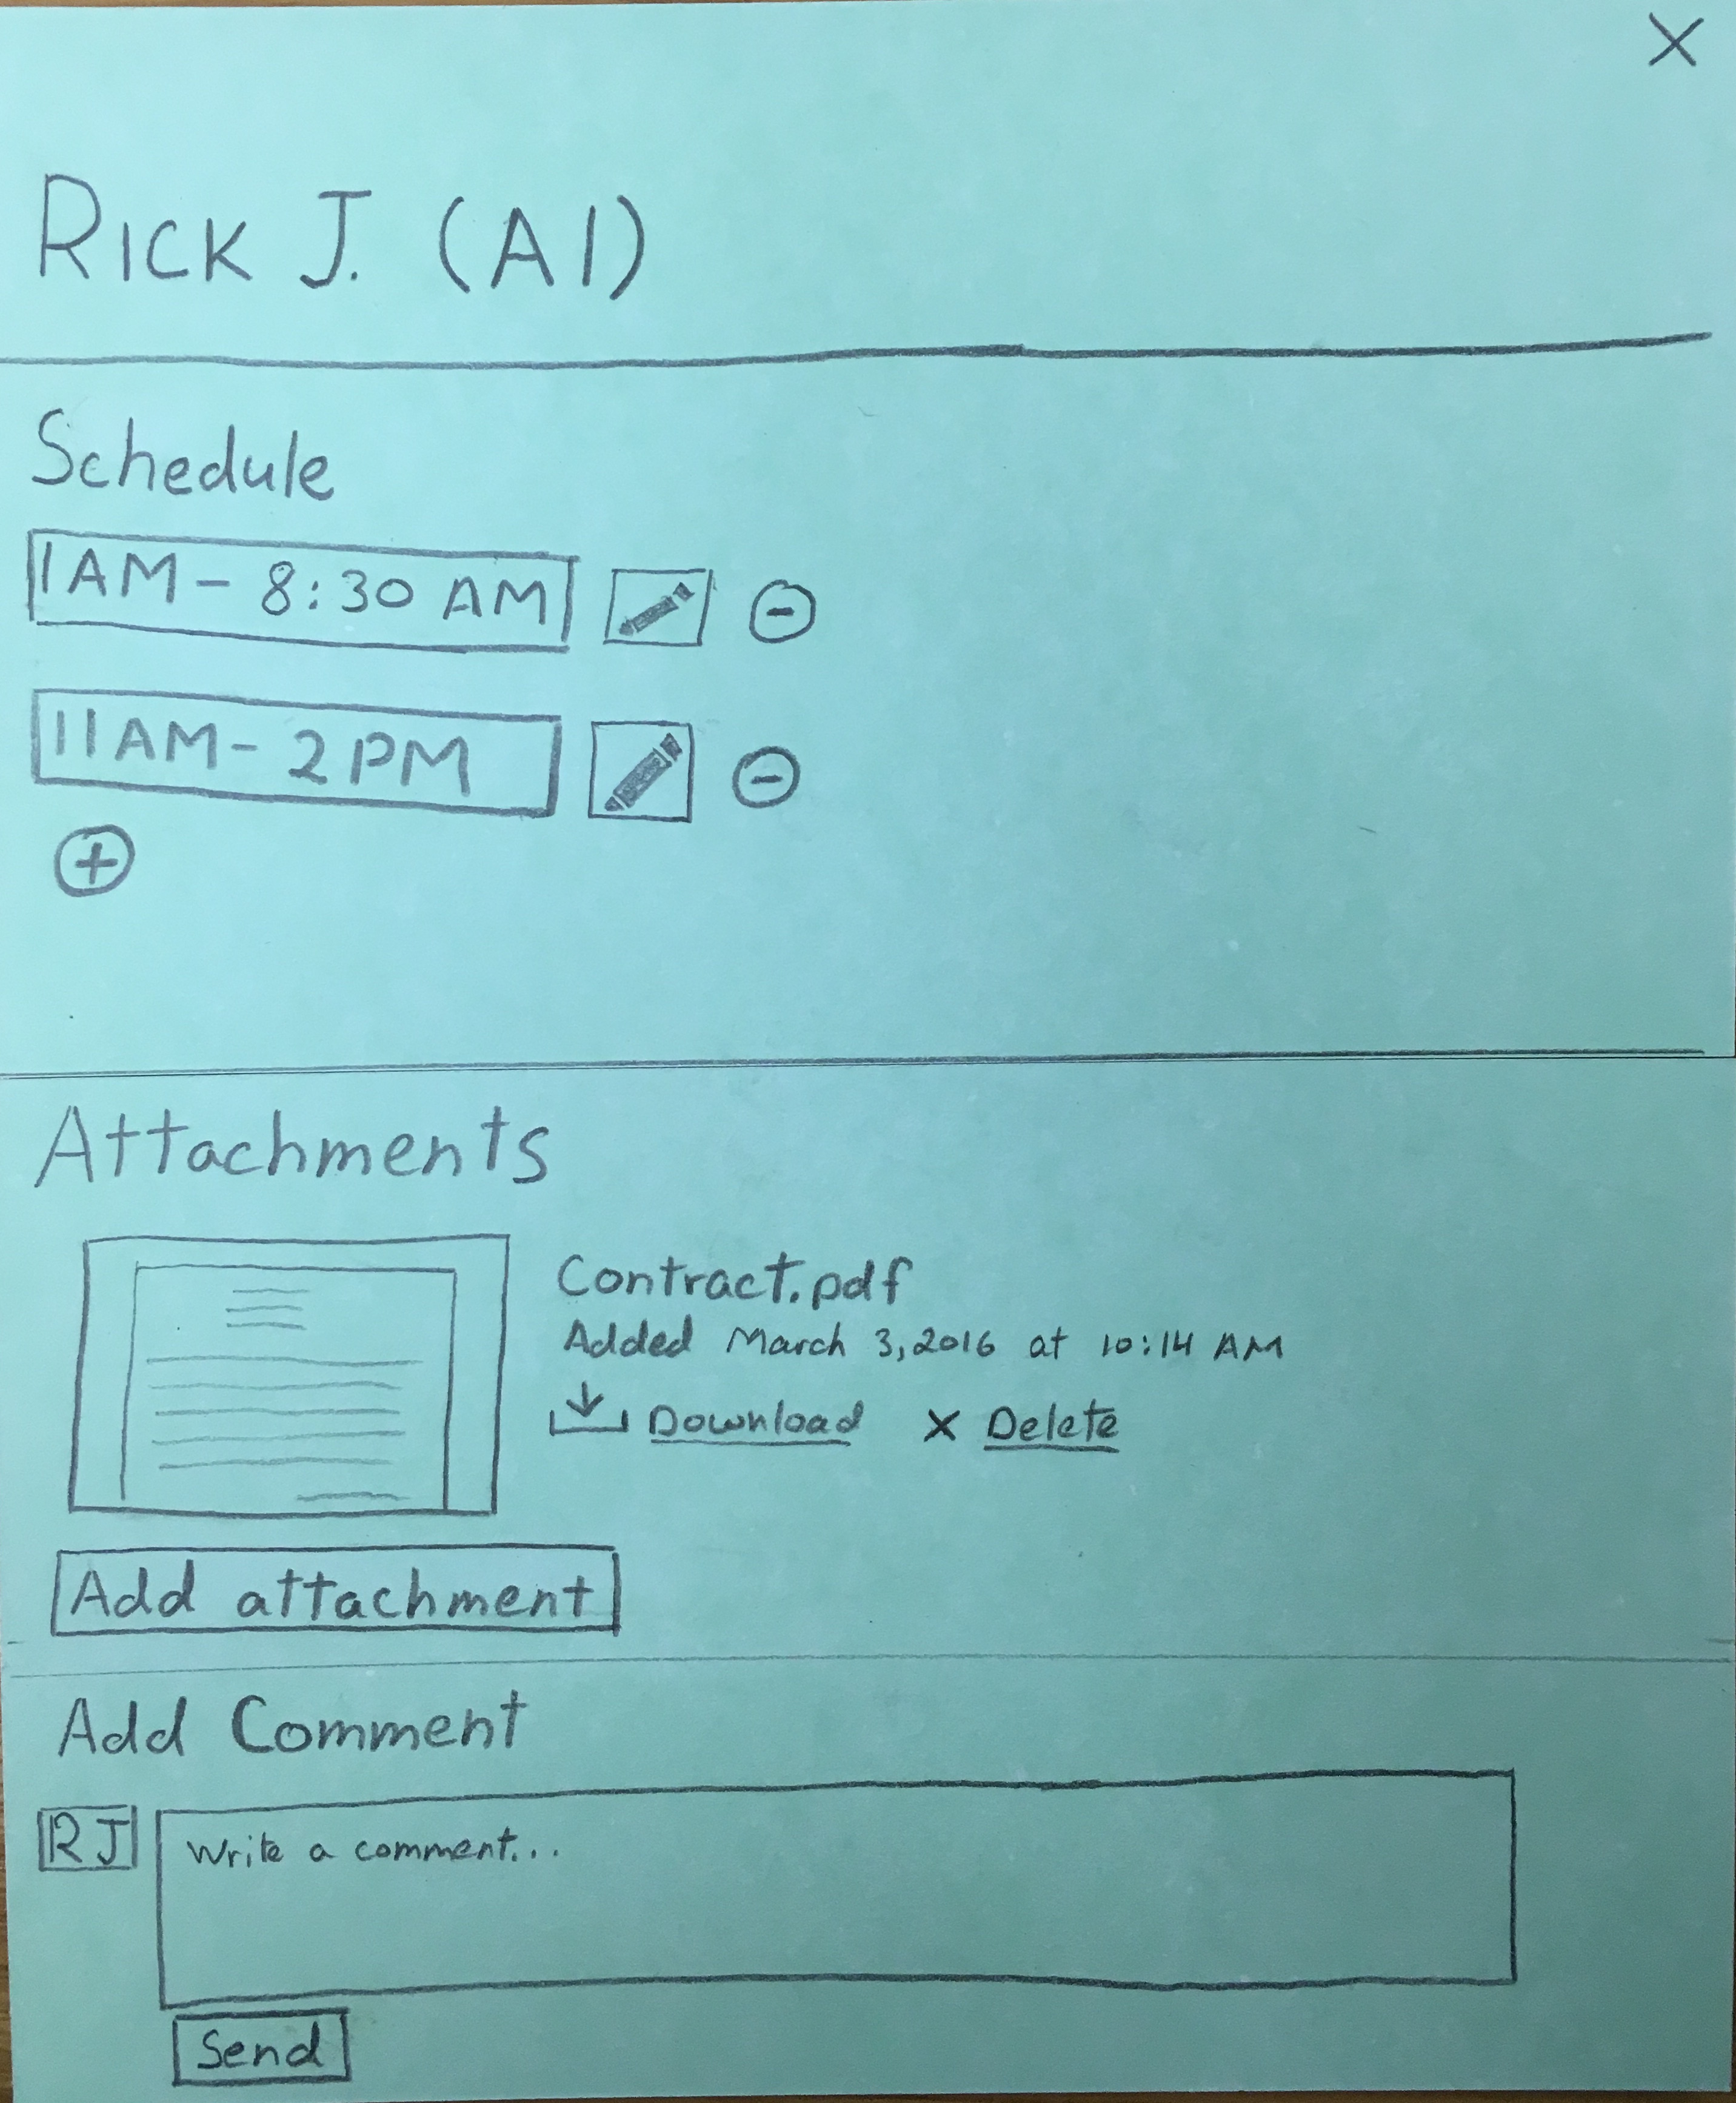 X
RICK J. (A1)
Schedule
1 AM - 8:30 AM
11 AM - 2 PM
Attachments
Contract.pdf
Added March 3, 2016 at 10:14 AM
Download X Delete
Add attachment
Add Comment
RJ Write a comment...
Send